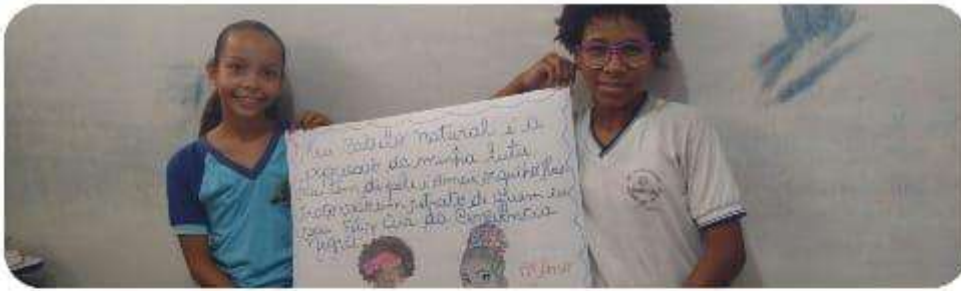 Meu Cabelo natural é a
expressão da minha luta,
meu tom de pele e amor, orgulho
retrato de quem eu
sou Feliz Dia da Consciência
Negra